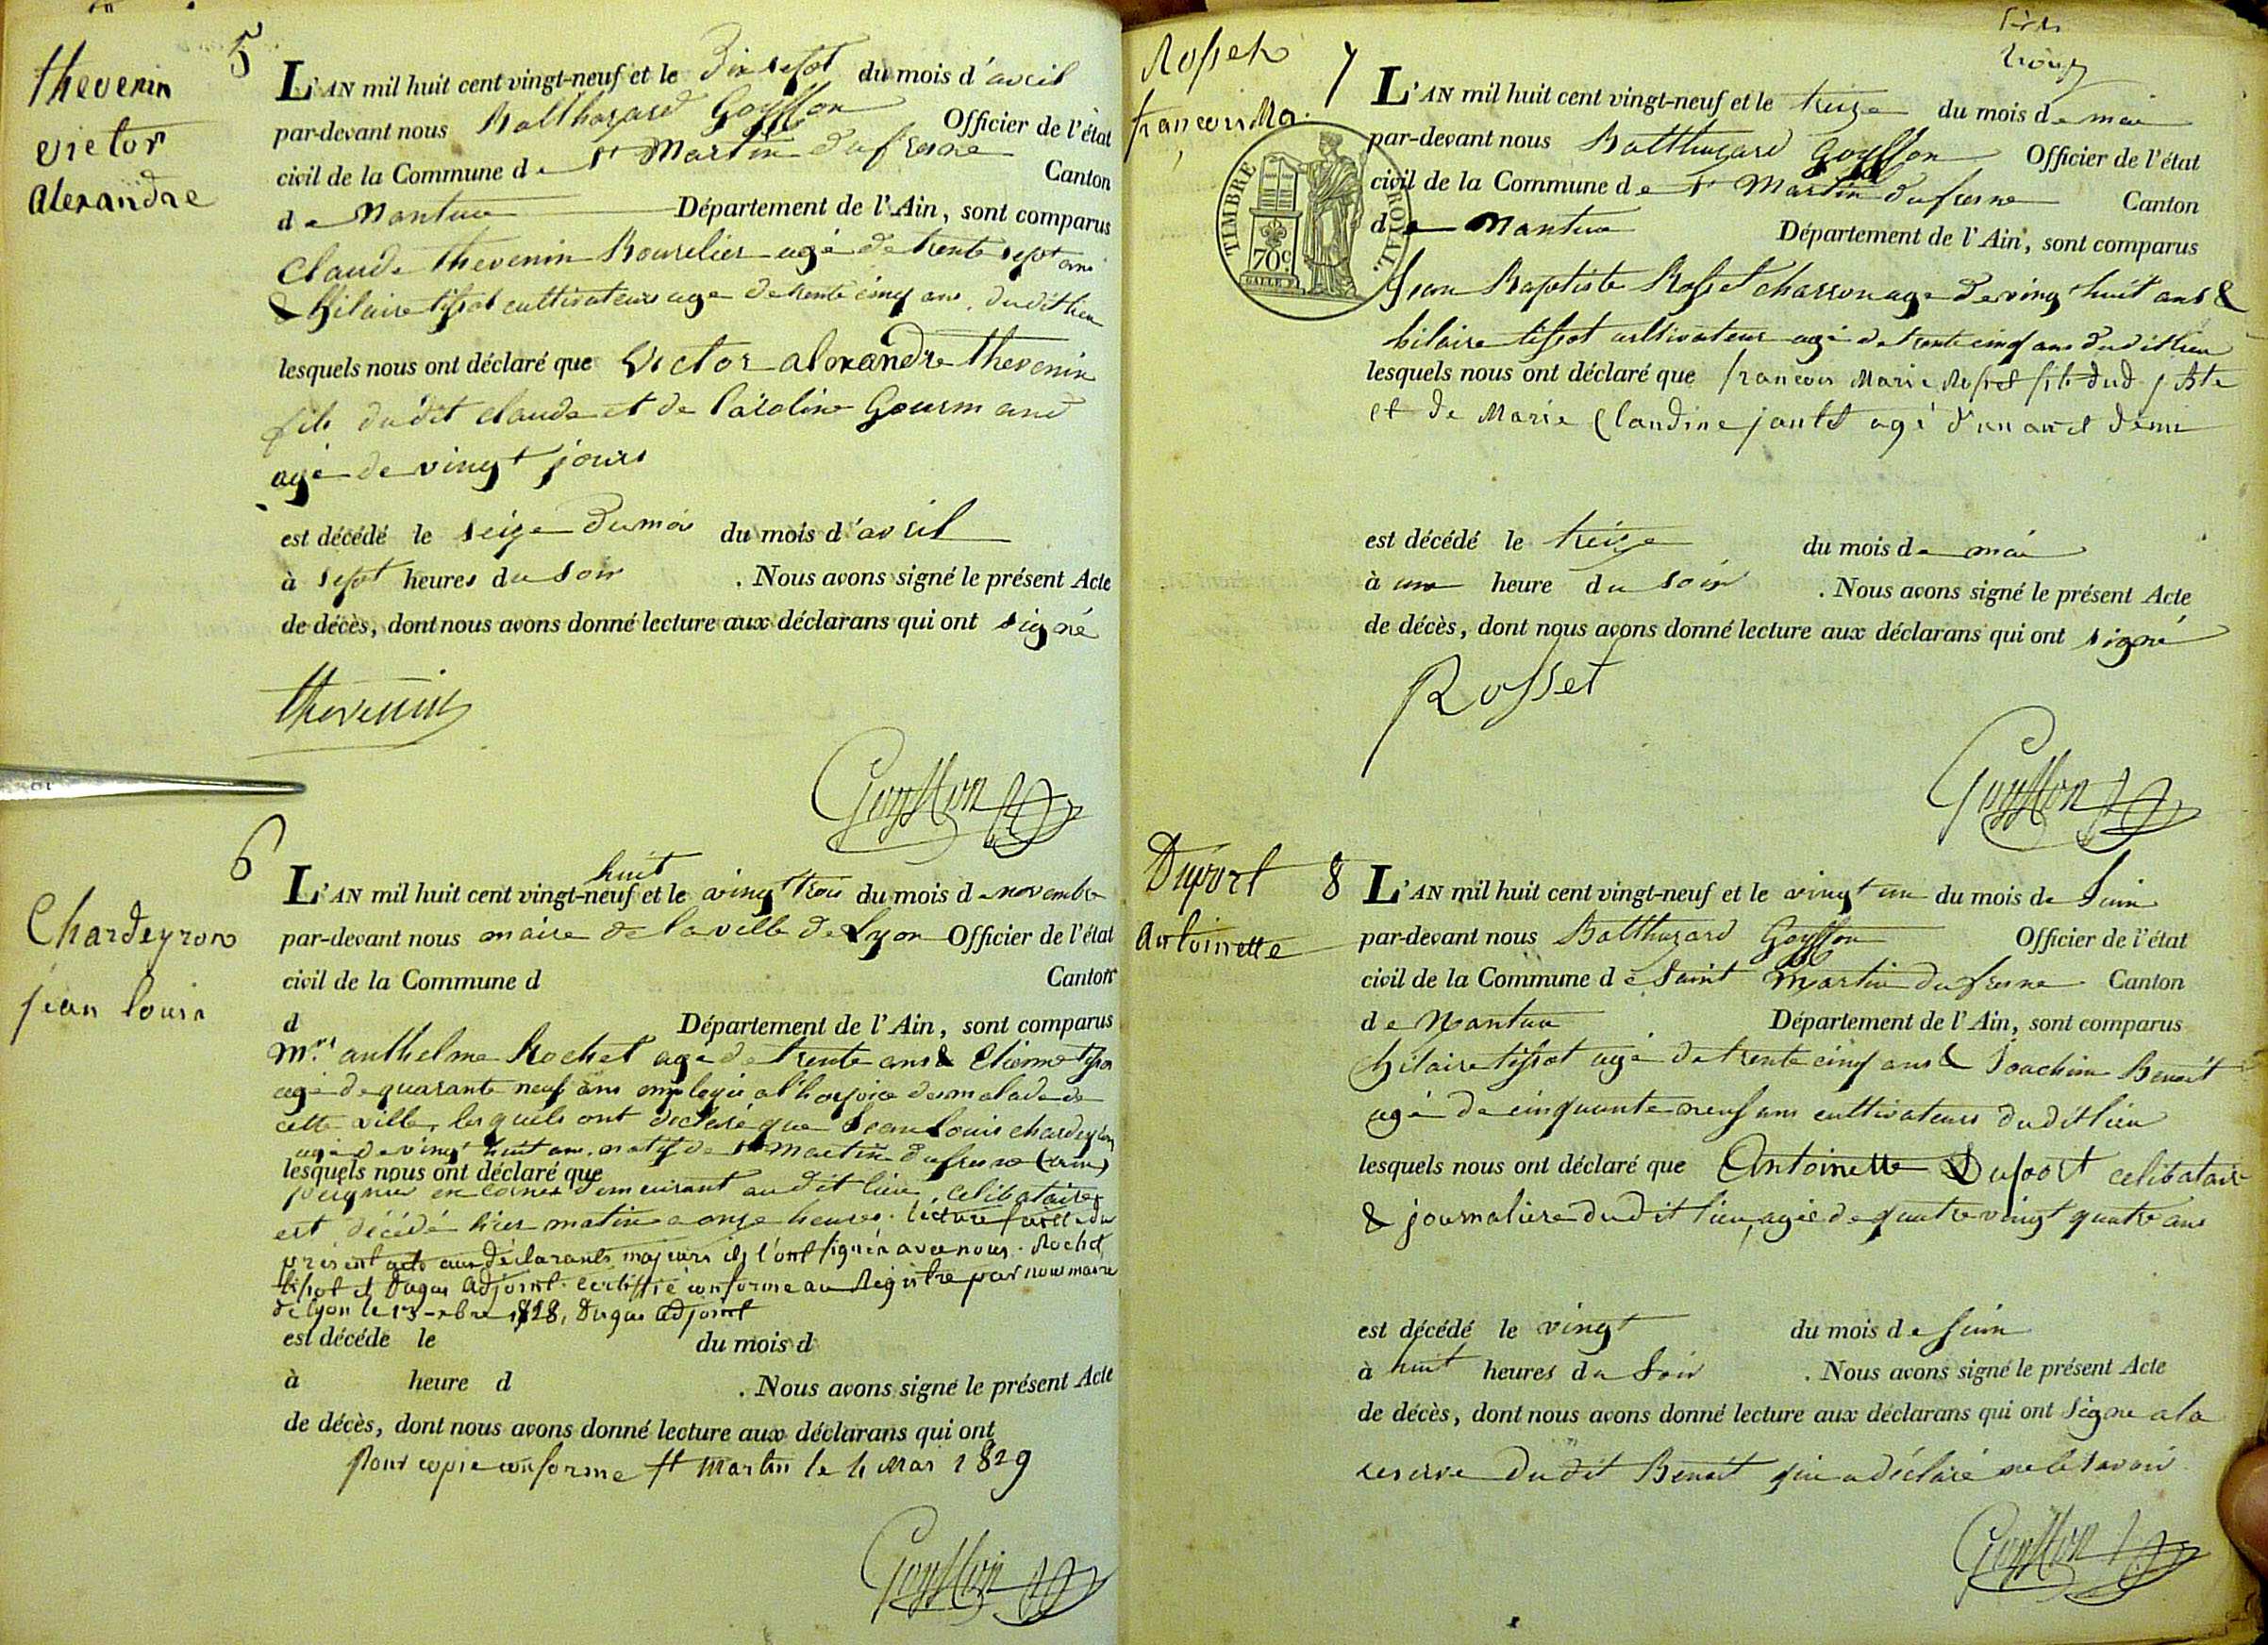 5
thevenin
victor
alexandre
L'AN mil huit cent vingt-neuf et le Dix sept du mois d'avril
par-devant nous Balthazard Goyffon Officier de l'état
civil de la Commune de St Martin du fresne Canton
de Nantua Département de l'Ain, sont comparus
Claude thevenin Bourelier agé de trente sept ans
& hilaire tissot cultivateur agé de trente cinq ans, dudit lieu
lesquels nous ont déclaré que Victor alexandre thevenin
fils dudit claude et de Caroline Gourmand
agé de vingt jours
est décédé le seize du mois du mois d'avril
à sept heures du soir . Nous avons signé le présent Acte
de décès, dont nous avons donné lecture aux déclarans qui ont signé
thevenin
Goyffon
6
Chardeyron
jean louis
huit
L'AN mil huit cent vingt-neuf et le vingt trois du mois de novembre
par-devant nous maire de la ville de Lyon Officier de l'état
civil de la Commune d Canton
d Département de l'Ain, sont comparus
Mrs anthelme Rochet agé de trente ans & Etienne tissot
agé de quarante neuf ans employés a l'hospice des malades de
cette ville, lesquels ont déclaré que Jean Louis chardeyron
agé de vingt huit ans, natif de St Martin du fresne (ain)
lesquels nous ont déclaré que
peigneur en cornes demeurant audit lieu, celibataire
est décédé hier matin a onze heures. lecture faite du
présent acte aux déclarants majeurs ils l'ont signés avec nous. Rochet
tissot et Dugas adjoint. certiffié conforme au Registre par nous maire
de lyon le 1828, Dugas adjoint
est décédé le du mois d
à heure d . Nous avons signé le présent Acte
de décès, dont nous avons donné lecture aux déclarans qui ont
Pour copie conforme St Martin le 4 Mai 1829
Goyffon
Rosset
francois Ma.
7
TIMBRE ROYAL.
70c
L'AN mil huit cent vingt-neuf et le treize du mois de mai
par-devant nous Balthazard Goyffon Officier de l'état
civil de la Commune de St Martin du fresne Canton
de Nantua Département de l'Ain, sont comparus
Jean Baptiste Rosset charron agé de ving huit ans &
hilaire tissot cultivateur agé de trente cinq ans dudit lieu
lesquels nous ont déclaré que francois Marie Rosset fils dud. j Bte
et de Marie Claudine jantet agé d'un an et demi
est décédé le treize du mois de mai
à une heure du soir . Nous avons signé le présent Acte
de décès, dont nous avons donné lecture aux déclarans qui ont signé
Rosset
Goyffon
Duport
Antoinette
8
L'AN mil huit cent vingt-neuf et le vingt un du mois de Juin
par-devant nous Balthazard Goyffon Officier de l'état
civil de la Commune de Saint Martin du fresne Canton
de Nantua Département de l'Ain, sont comparus
hilaire tissot agé de trente cinq ans & Joachim Benoit
agé de cinquante neuf ans cultivateurs dudit lieu
lesquels nous ont déclaré que Antoinette Duport celibataire
& journaliere dudit lieu, agée de quatre vingt quatre ans
est décédé le vingt du mois de Juin
à huit heures du Soir . Nous avons signé le présent Acte
de décès, dont nous avons donné lecture aux déclarans qui ont Signe a la
reserve dudit Benoit qui a déclaré ne le savoir
Goyffon